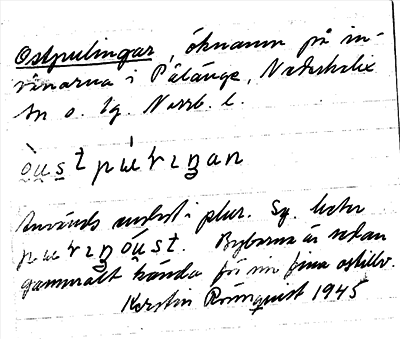 Ostpulingar, öknamn på in-
vånarna i Pålänge, Nederkalix
sn o. tg. Norrb. l.
òu̯stpɯ́rɪŋan
Används endast i plur. Sg. heter
pɯrɪŋóu̯st. Byborna är sedan
gammalt kända för sin fina ostillv.
Kerstin Rönnquist 1945